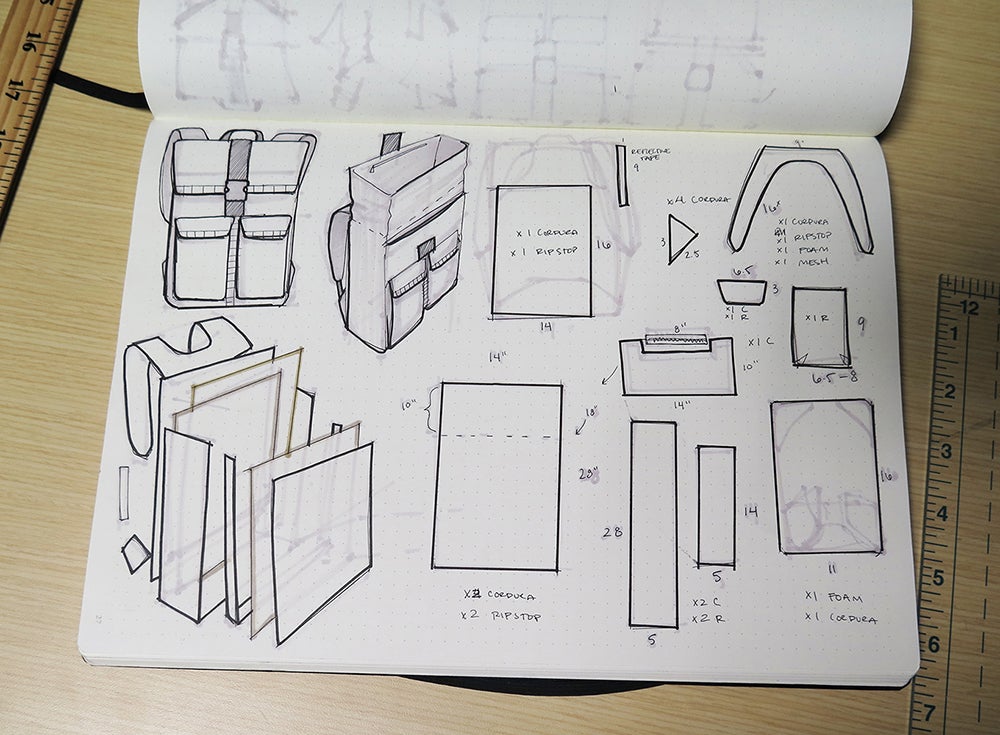 16
17
REFLECTIVE
TAPE
9
x4 CORDURA
3
2.5
9"
16"
x1 CORDURA
x1 RIPSTOP
x1 FOAM
x1 MESH
x1 CORDURA
x1 RIPSTOP
16
14
6.5
3
x1 C
x1 R
x1 R
9
6.5-8
8"
x1 C
10"
14"
14"
10"
18"
28"
x2 CORDURA
x2 RIPSTOP
28
5
14
5
x2 C
x2 R
16
11
x1 FOAM
x1 CORDURA
12
1
2
3
4
5
6
7